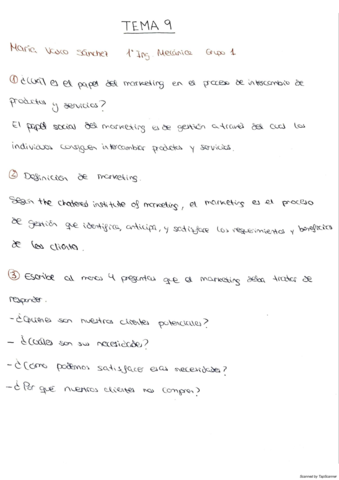 TEMA 9
María Vasco Sánchez 1º Ing. Mecánica Grupo 1
① ¿Cuál es el papel del marketing en el proceso de intercambio de
productos y servicios?
El papel social del marketing es de gestión a través del cual los
individuos consiguen intercambiar productos y servicios.
② Definición de marketing.
Según the chatered institute of marketing, el marketing es el proceso
de gestión que identifica, anticipa, y satisface los requerimientos y beneficios
de los clientes.
③ Escribe al menos 4 preguntas que el marketing debe tratar de
responder.
- ¿Quiénes son nuestros clientes potenciales?
- ¿Cuáles son sus necesidades?
- ¿Como podemos satisfacer esas necesidades?
- ¿Por qué nuestros clientes nos compran?
Scanned by TapScanner